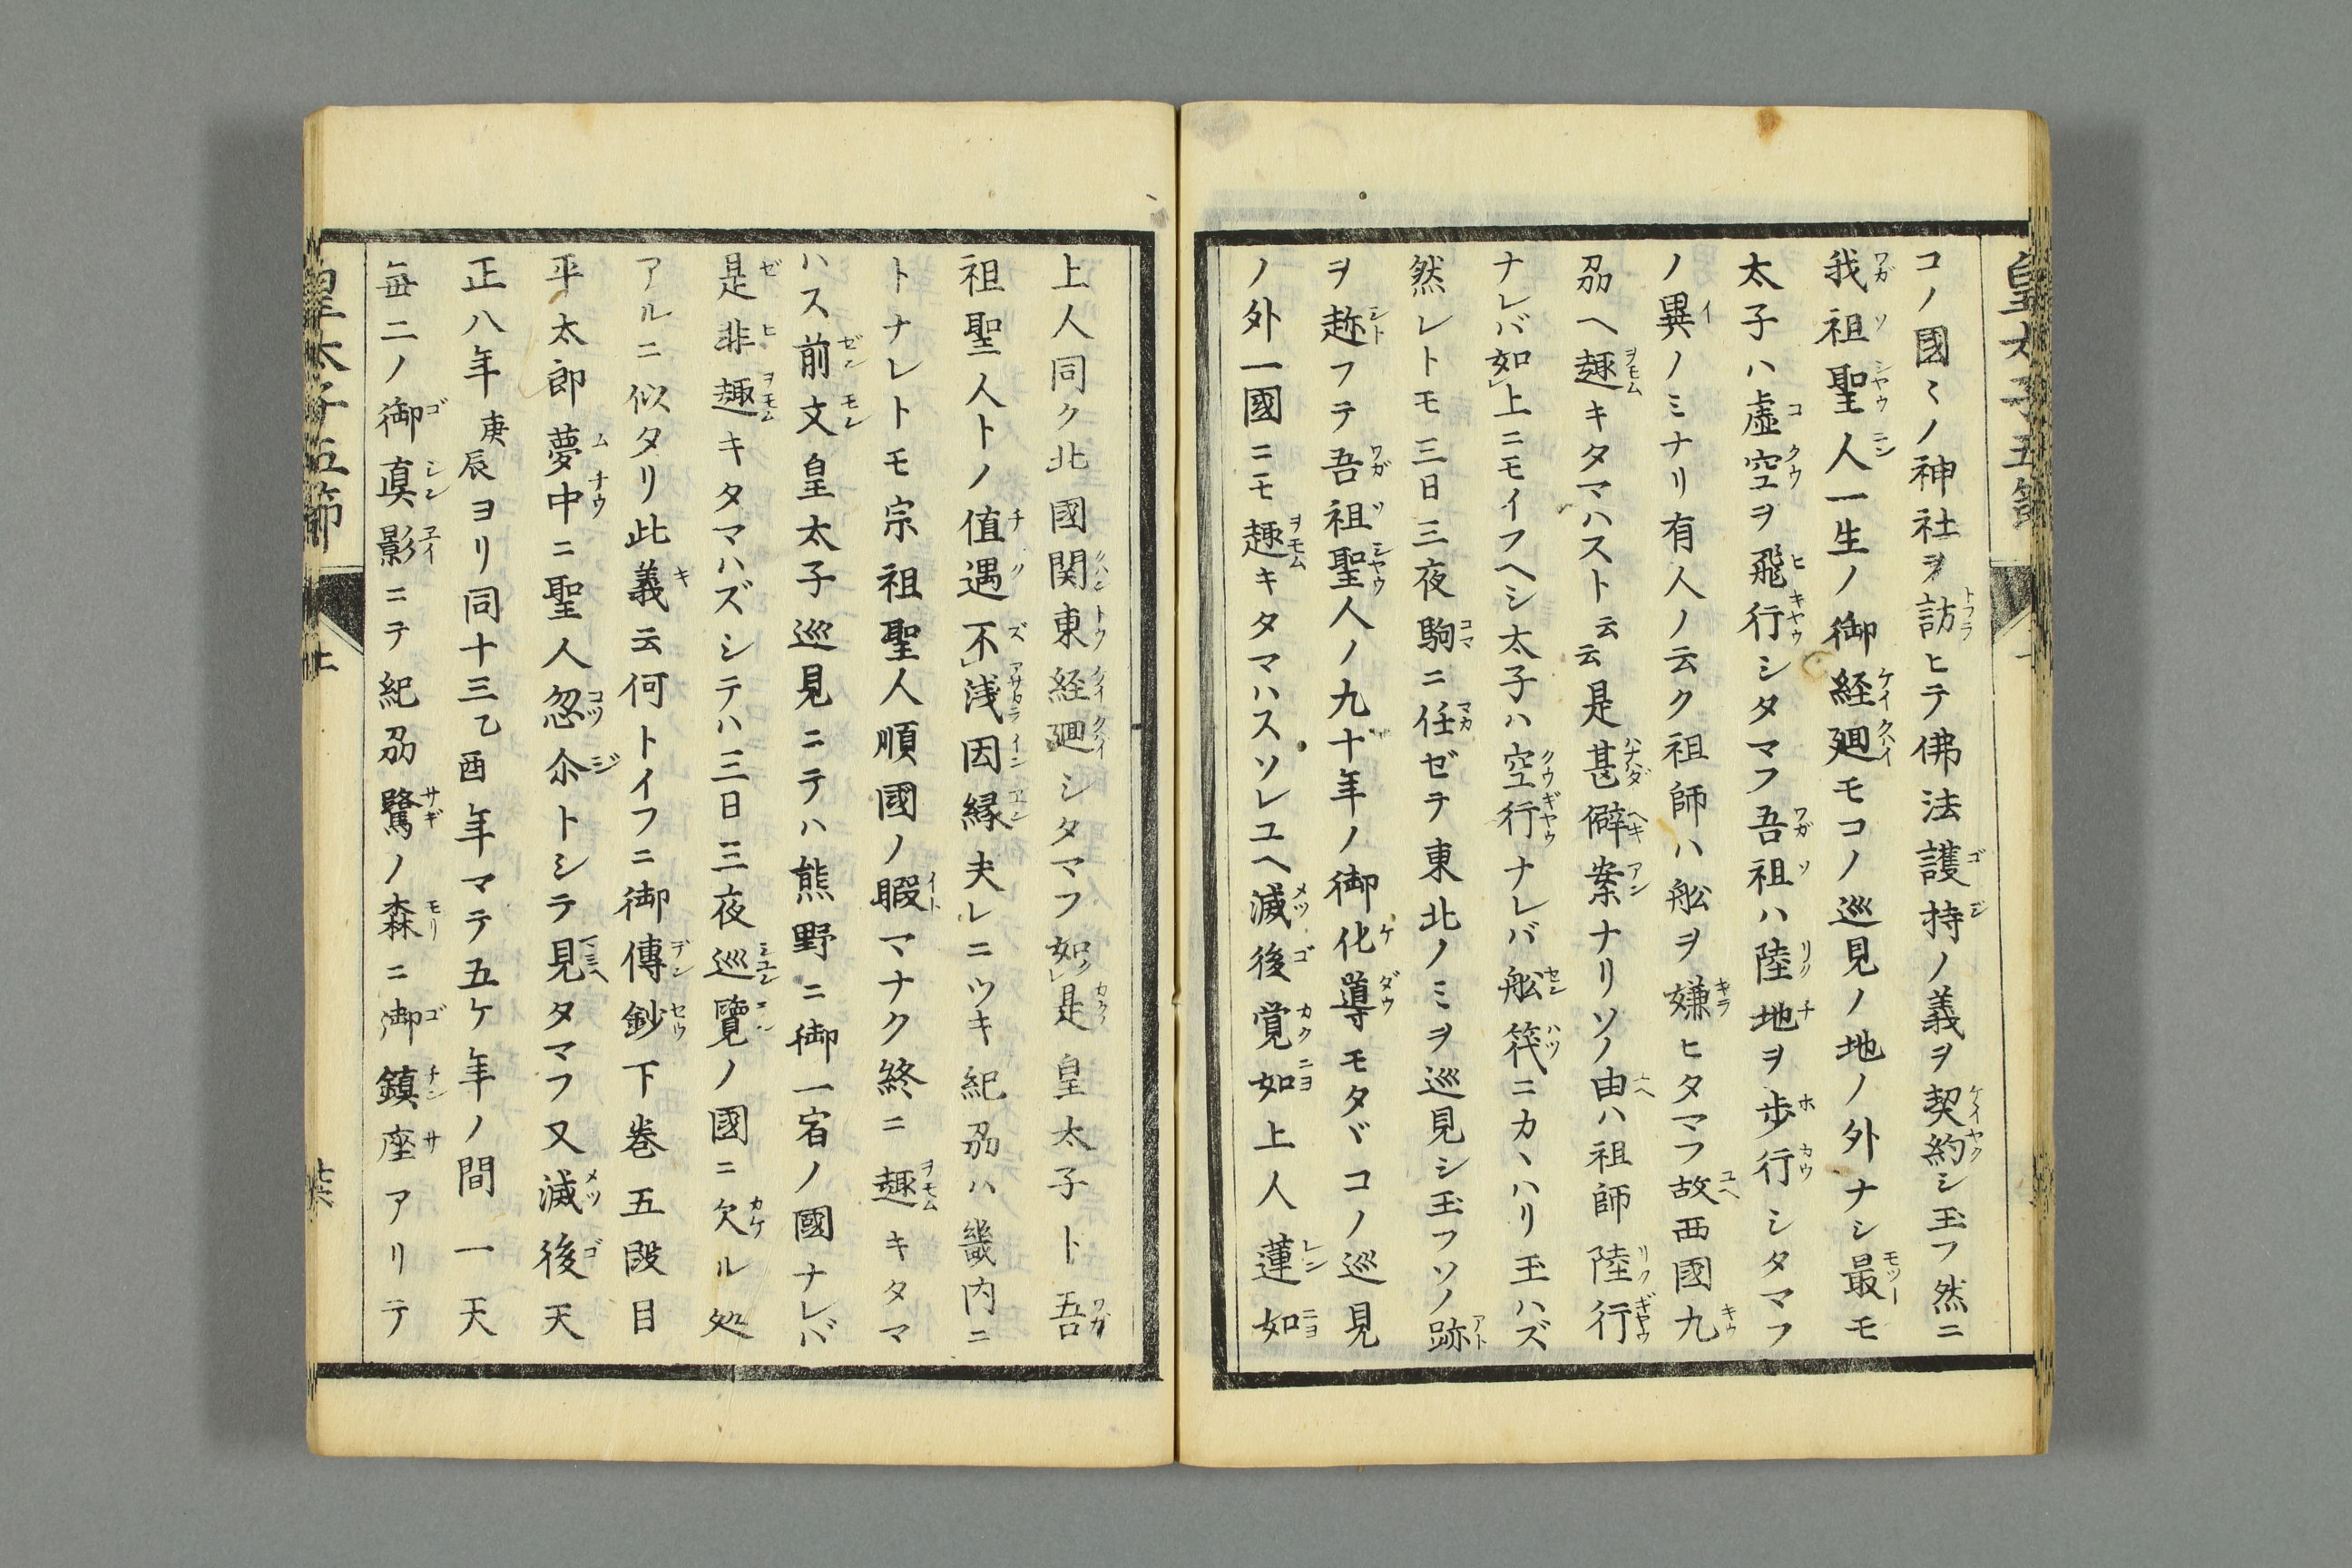 皇太子五節
コノ國〻ノ神社ヲ訪ヒテ佛法護持ノ義ヲ契約シ玉フ然ニ
我祖聖人一生ノ御経廻モコノ巡見ノ地ノ外ナシ最モ
太子ハ虚空ヲ飛行シタマフ吾祖ハ陸地ヲ歩行シタマフ
ノ異ノミナリ有人ノ云ク祖師ハ舩ヲ嫌ヒタマフ故西國九
刕ヘ趣キタマハスト云云是甚僻案ナリソノ由ハ祖師陸行
ナレバ如上ニモイフヘシ太子ハ空行ナレバ舩筏ニカヽハリ玉ハズ
然レトモ三日三夜駒ニ任ゼテ東北ノミヲ巡見シ玉フソノ跡
ヲ趂フテ吾祖聖人ノ九十年ノ御化導モタヾコノ巡見
ノ外一國ニモ趣キタマハスソレユヘ滅後覚如上人蓮如
上人同ク北國関東経廻シタマフ如是皇太子ト吾
祖聖人トノ値遇不淺因縁夫レニツキ紀刕ハ畿内ニ
トナレトモ宗祖聖人順國ノ暇マナク終ニ趣キタマ
ハス前文皇太子巡見ニテハ熊野ニ御一宿ノ國ナレバ
是非趣キタマハズシテハ三日三夜巡覽ノ國ニ欠ル処
アルニ似タリ此義云何トイフニ御傳鈔下巻五段目
平太郎夢中ニ聖人忽尒トシテ見タマフ又滅後天
正八年庚辰ヨリ同十三乙酉年マテ五ケ年ノ間一天
毎二ノ御真影ニテ紀刕鷺ノ森ニ御鎮座アリテ
皇太子五節 上